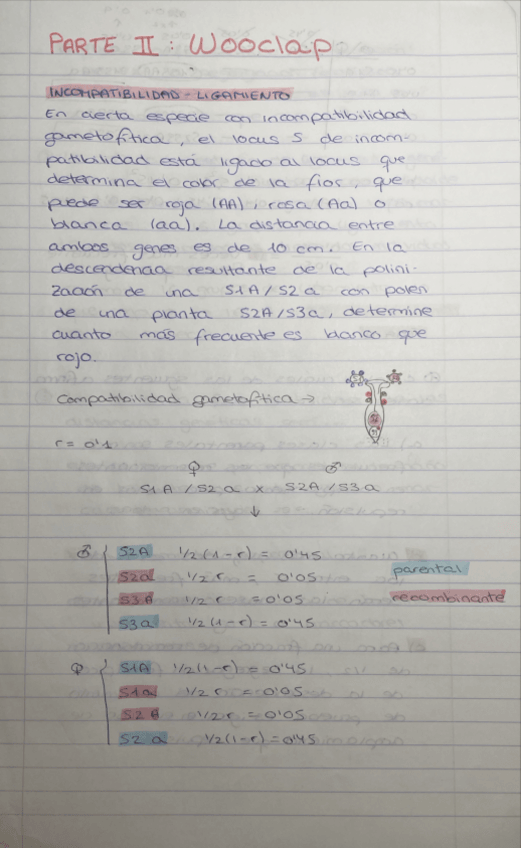 PARTE II : Wooclap
INCOMPATIBILIDAD - LIGAMIENTO
En cierta especie con incompatibilidad
gametofítica, el locus S de incom-
patibilidad está ligado al locus que
determina el color de la flor, que
puede ser roja (AA), rosa (Aa) o
blanca (aa). La distancia entre
ambos genes es de 10 cm. En la
descendencia resultante de la polini-
zación de una S1A/S2a con polen
de una planta S2A/S3a, determine
cuanto más frecuente es blanco que
rojo.
Compatibilidad gametofítica →
r = 0'1
♀ ♂
S1A / S2a x S2A / S3a
↓
♂ S2A 1/2 (1-r) = 0'45
S2a 1/2 r = 0'05
S3A 1/2 r = 0'05
S3a 1/2 (1-r) = 0'45
parental
recombinante
♀ S1A 1/2 (1-r) = 0'45
S1a 1/2 r = 0'05
S2A 1/2 r = 0'05
S2a 1/2 (1-r) = 0'45